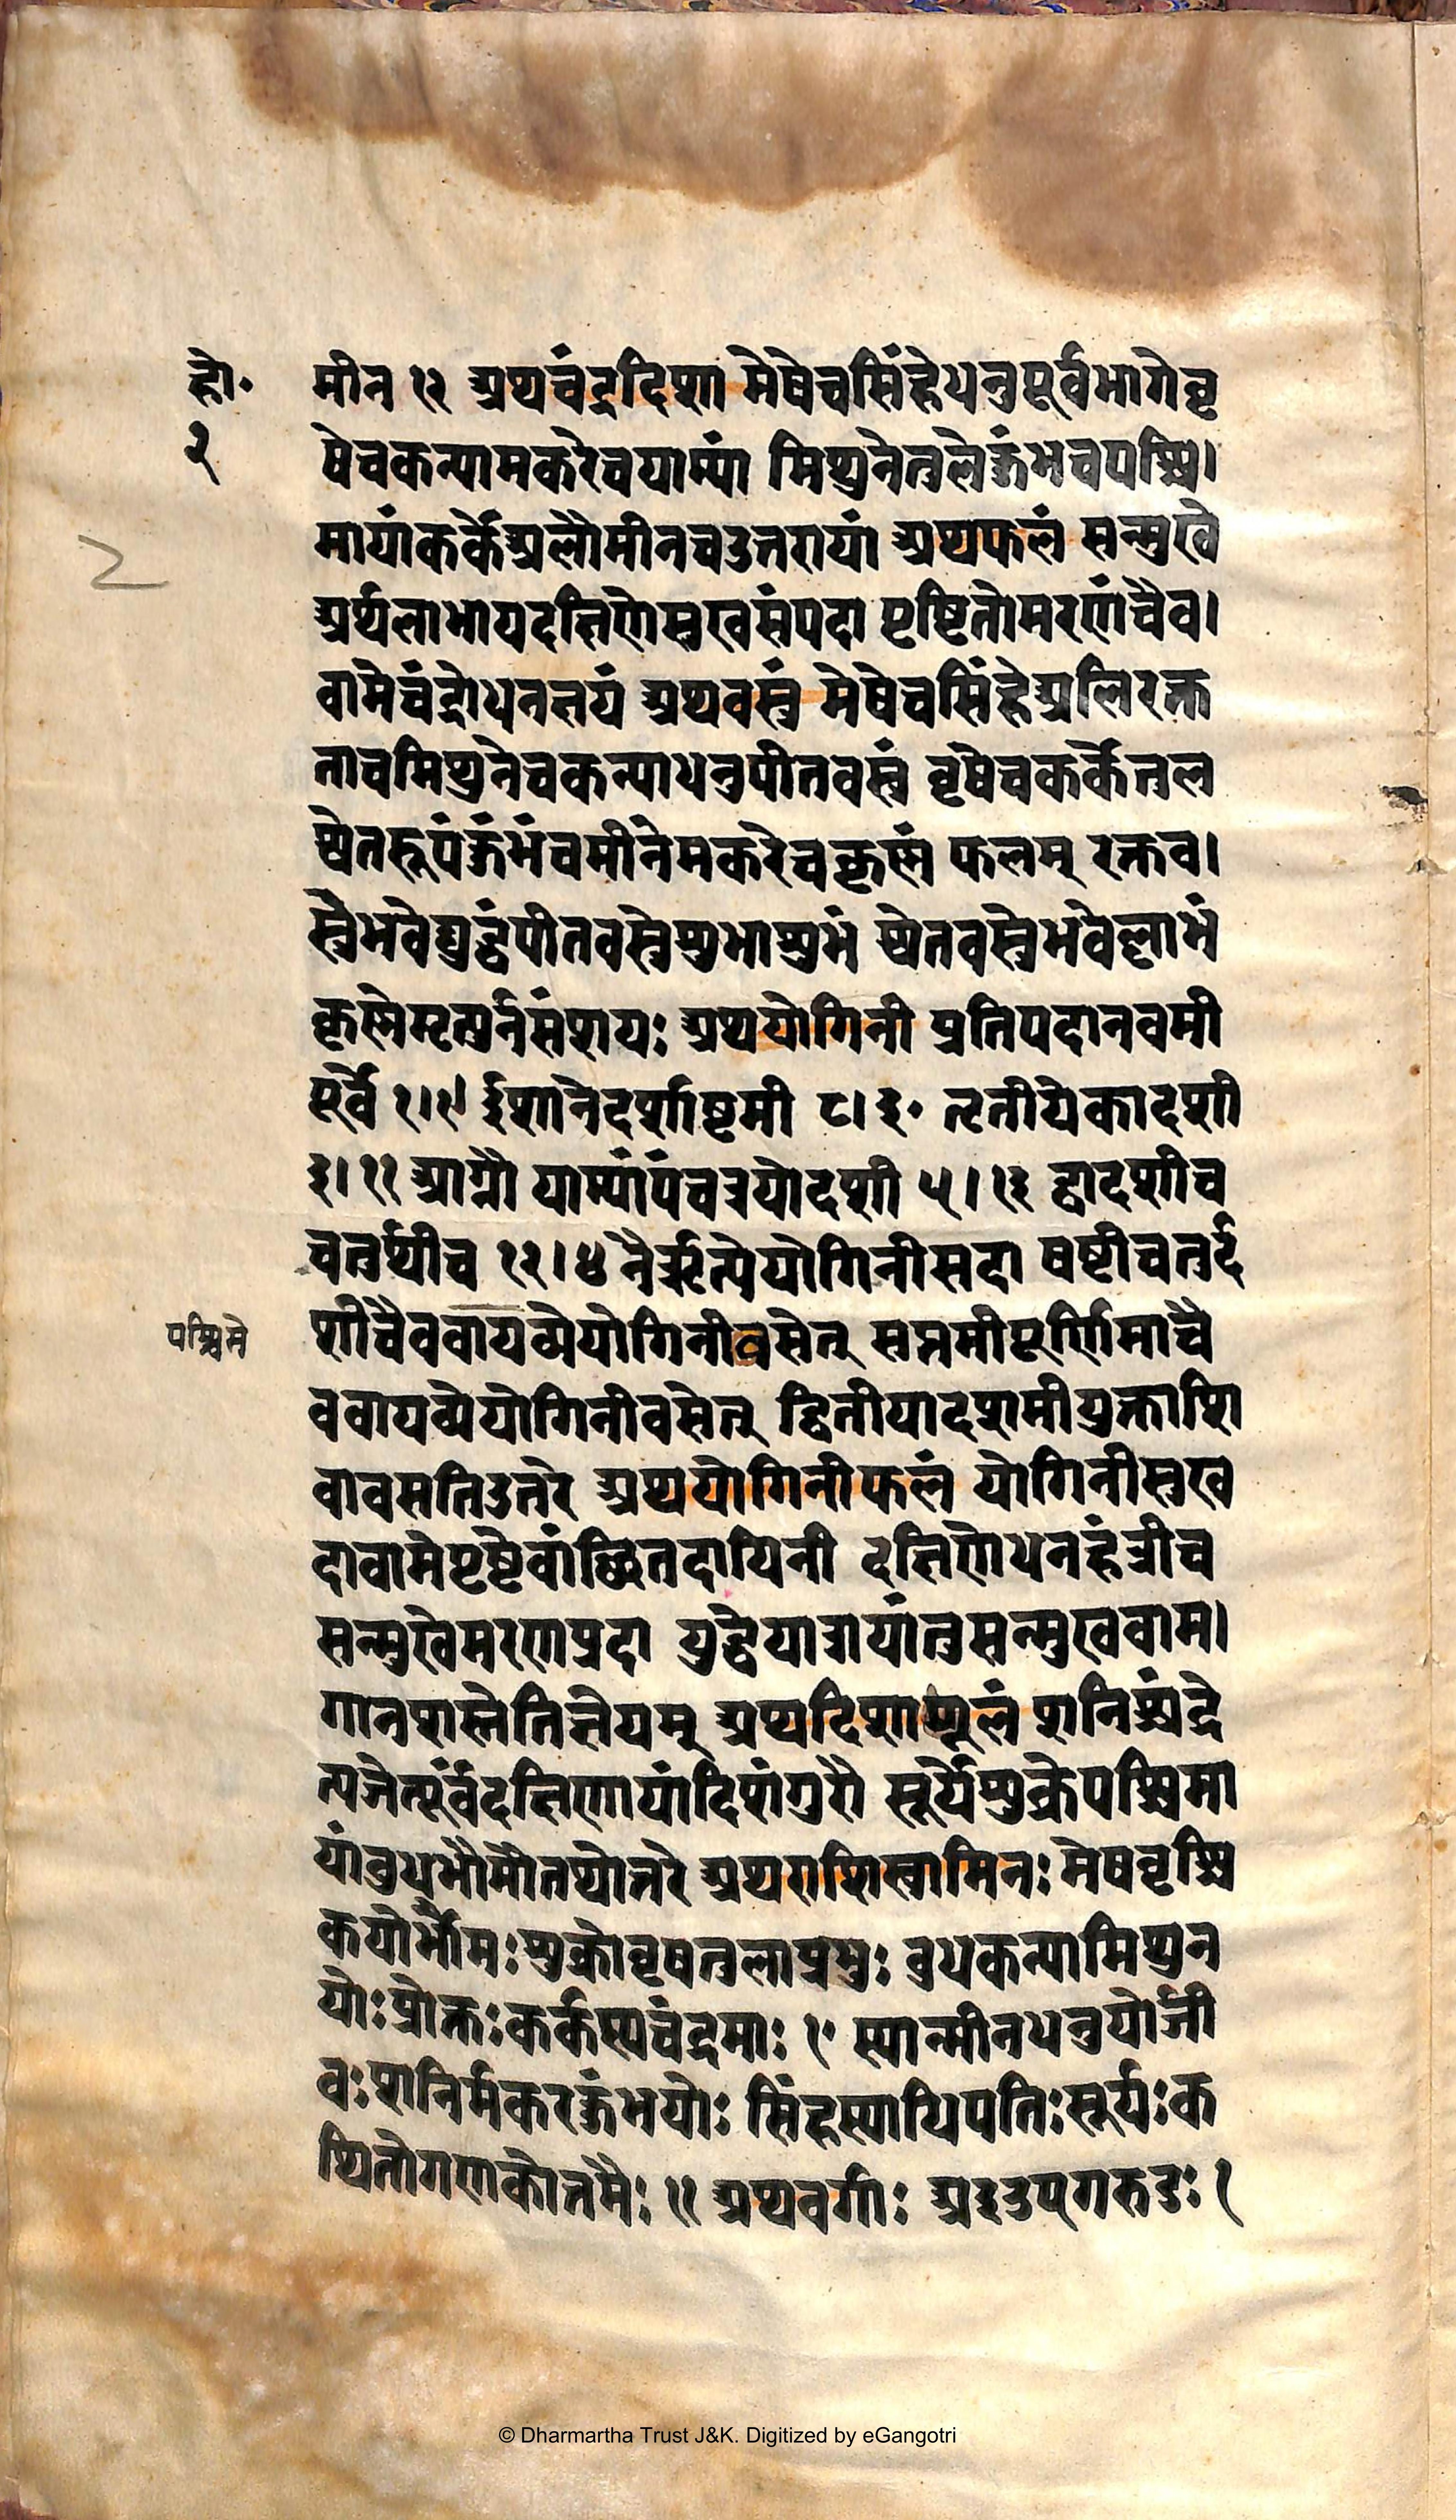 हो॰ मीन १२ अथचंद्रदिशा मेषेचसिंहेधनुपूर्वभागेवृ
२ षेचकन्यामकरेचयाम्यां मिथुनेतुलेकुंभचपश्चि।
2 मायांकर्केअलौमीनचउत्तरायां अथफलं सन्मुखे
अर्थलाभायदक्षिणेसुखसंपदा पृष्टितोमरणंचैव।
वामेचंद्रोधनक्षयं अथवस्त्रं मेषेचसिंहेअलिरक्त
ताचमिथुनेचकन्याधनुपीतवस्त्रं वृषेचकर्केतुल
श्वेतरूपंकुंभंचमीनेमकरेचकृष्णं फलम् रक्तव।
स्त्रैभवेद्युद्धंपीतवस्त्रेशुभाशुभं श्वेतवस्त्रेभवेल्लाभं
कृष्णेमृत्युर्नसंशयः अथयोगिनी प्रतिपदानवमी
पूर्वे १।९। ईशानेदर्शाष्टमी ८।३॰ तृतीयेकादशी
३।११ आग्नौ याम्यांपंचत्रयोदशी ५।१३ द्वादशीच
चतुर्थीच १२।४ नैर्ऋत्येयोगिनीसदा षष्टीचतुर्द
पश्चिमे शीचैववायव्येयोगिनीवसेत् सप्तमीपूर्णिमाचै
ववायव्येयोगिनीवसेत् द्वितीयादशमीयुक्ताशि
वावसतिउत्तरे अथयोगिनीफलं योगिनीसुख
दावामेपृष्टेवांच्छितदायिनी दक्षिणेधनहंत्रीच
सन्मुखेमरणप्रदा युद्धेयात्रायांतुसन्मुखवाम।
गानशस्तेतिज्ञेयम् अथदिशाशूलं शनिश्चंद्रे
त्यजेत्पूर्वंदक्षिणायांदिशंगुरौ सूर्येशुक्रेपश्चिमा
यांबुधभौमौतथोत्तरे अथराशिस्वामिनः मेषवृश्चि
कयोर्भौमःशुक्रोवृषतुलाप्रभुः बुधकन्यामिथुन
योःप्रोक्तःकर्कस्यचंद्रमाः १॰ स्यान्मीनधनुयोर्जी
वःशनिर्मकरकुंभयोः सिंहस्याधिपतिःसूर्यःक
थितोगणकोत्तमैः ११ अथवर्गाः अइउएगरुडः १
© Dharmartha Trust J&K. Digitized by eGangotri